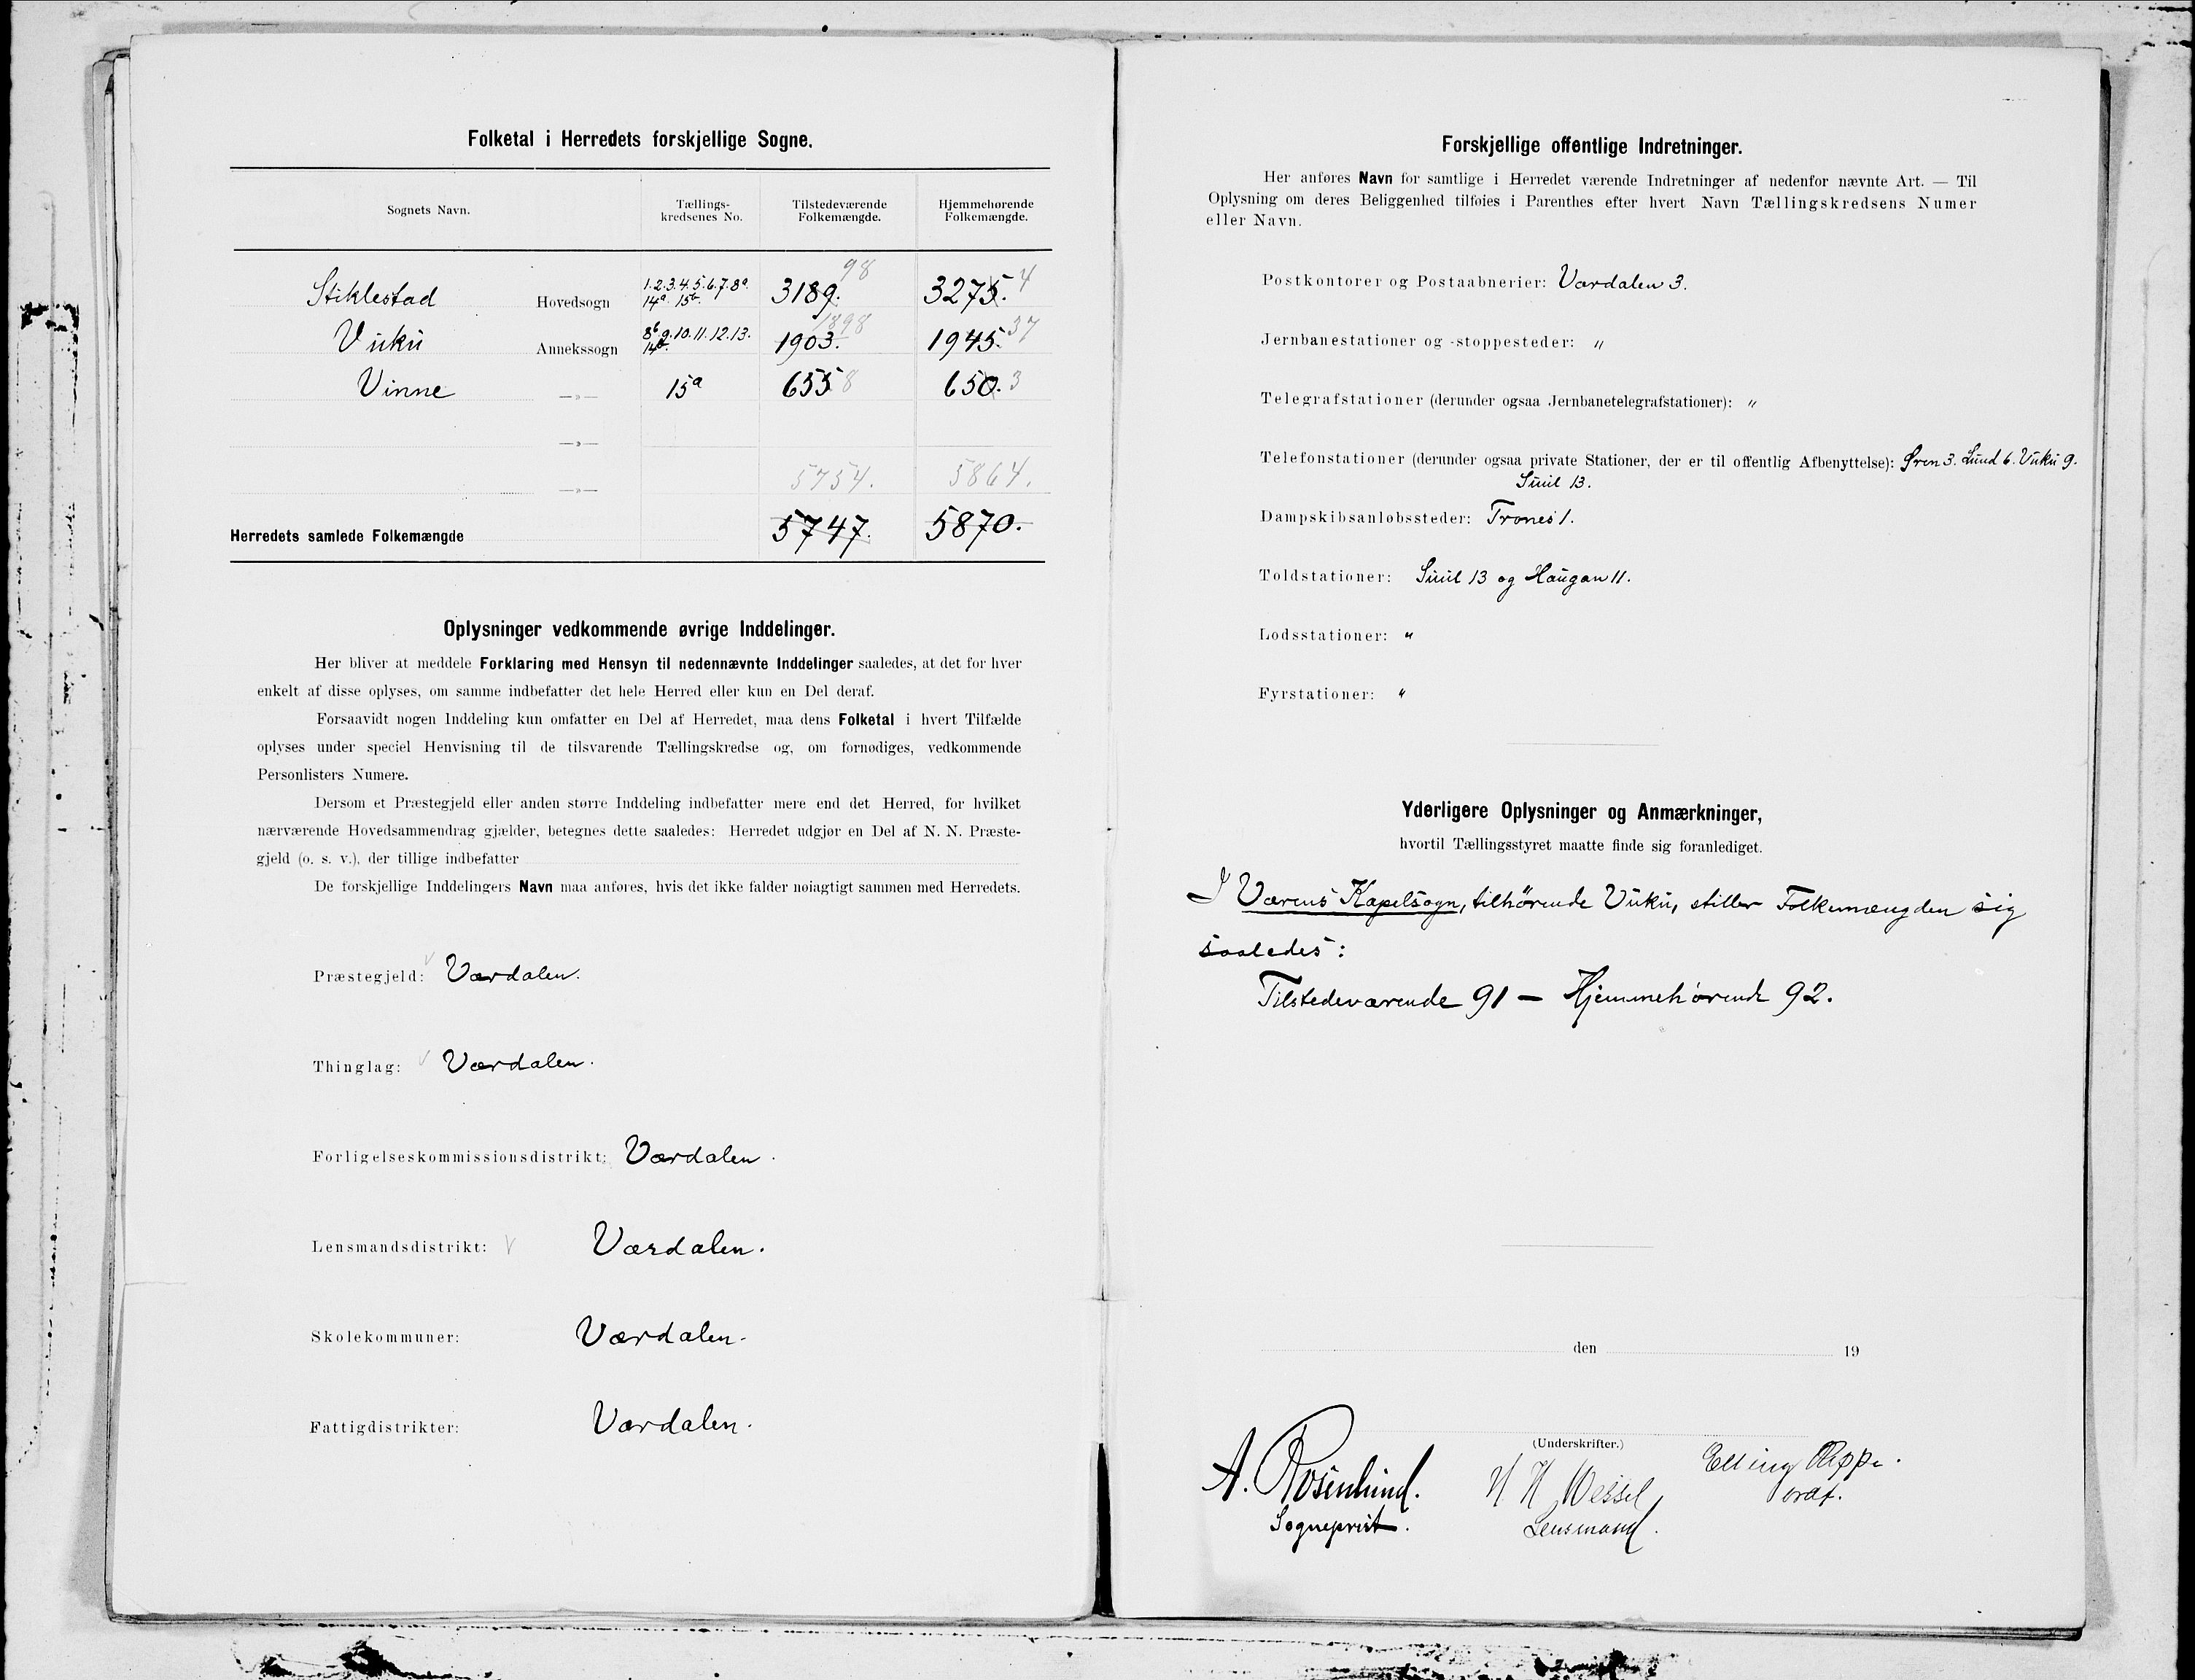 Folketal i Herredets forskjellige Sogne.
Sognets Navn. Tællings-kredsenes No. Tilstedeværende Folkemængde. Hjemmehørende Folkemængde.
98 4
Stiklestad Hovedsogn 1.2.3.4.5.6.7.8a. 14a. 15b. 3189. 3275.
1898 37
Vuku Annekssogn 8b 9.10.11.12.13. 14b. 1903. 1945.
Vinne —»— 15a 655 8 650. 3
—»—
—»— 5754. 5864.
Herredets samlede Folkemængde 5747. 5870.
Oplysninger vedkommende øvrige Inddelinger.
Her bliver at meddele Forklaring med Hensyn til nedennævnte Inddelinger saaledes, at det for hver
enkelt af disse oplyses, om samme indbefatter det hele Herred eller kun en Del deraf.
Forsaavidt nogen Inddeling kun omfatter en Del af Herredet, maa dens Folketal i hvert Tilfælde
oplyses under speciel Henvisning til de tilsvarende Tællingskredse og, om fornødiges, vedkommende
Personlisters Numere.
Dersom et Præstegjeld eller anden større Inddeling indbefatter mere end det Herred, for hvilket
nærværende Hovedsammendrag gjælder, betegnes dette saaledes: Herredet udgjør en Del af N. N. Præste-
gjeld (o. s. v.), der tillige indbefatter
De forskjellige Inddelingers Navn maa anføres, hvis det ikke falder nøiagtigt sammen med Herredets.
Præstegjeld: Værdalen.
Thinglag: Værdalen.
Forligelseskommissionsdistrikt: Værdalen.
Lensmandsdistrikt: Værdalen.
Skolekommuner: Værdalen.
Fattigdistrikter: Værdalen.
Forskjellige offentlige Indretninger.
Her anføres Navn for samtlige i Herredet værende Indretninger af nedenfor nævnte Art. — Til
Oplysning om deres Beliggenhed tilføies i Parenthes efter hvert Navn Tællingskredsens Numer
eller Navn.
Postkontorer og Postaabnerier: Værdalen 3.
Jernbanestationer og -stoppesteder: "
Telegrafstationer (derunder ogsaa Jernbanetelegrafstationer): "
Telefonstationer (derunder ogsaa private Stationer, der er til offentlig Afbenyttelse): Øren 3. Lund 6. Vuku 9.
Suul 13.
Dampskibsanløbssteder: Trones 1.
Toldstationer: Suul 13 og Haugan 11.
Lodsstationer: "
Fyrstationer: "
Yderligere Oplysninger og Anmærkninger,
hvortil Tællingsstyret maatte finde sig foranlediget.
I Værens Kapelsogn, tilhørende Vuku, stiller Folkemængden sig
saaledes:
Tilstedeværende 91 — Hjemmehørende 92.
den 19
(Underskrifter.)
A. Rosenlund. H Wessel Elling
Sogneprest. Lensmand. Ordf.